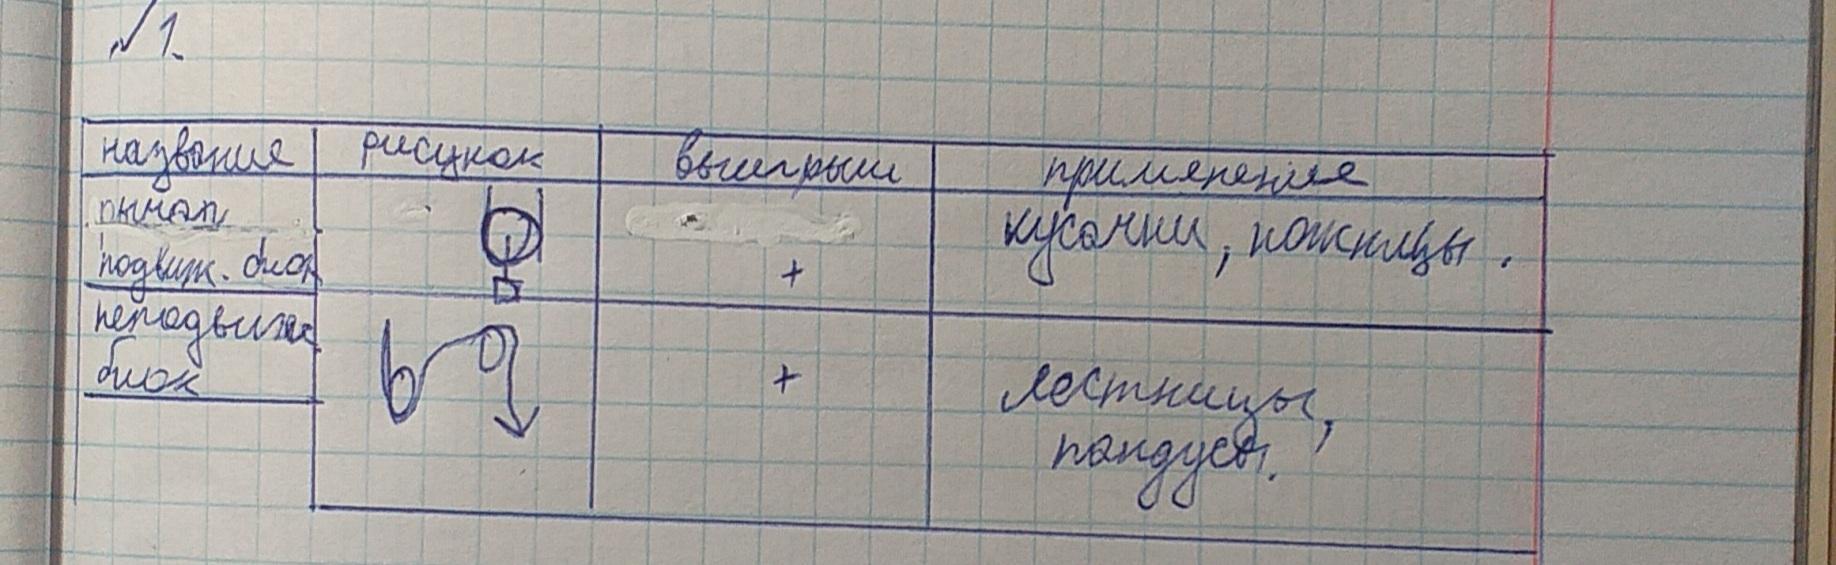 √1.
название рисунок выигрыш применение
рычаг
кусачки, ножницы.
подвиж. блок +
неподвиж
блок +
лестницы,
пандусы.